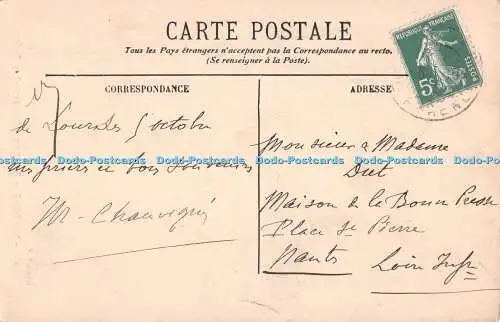 CARTE POSTALE
Tous les Pays étrangers n'acceptent pas la Correspondance au recto.
(Se renseigner à la Poste).
REPUBLIQUE FRANÇAISE
5c
POSTES
CORRESPONDANCE
ADRESSE
de Lourdes 5 octobre
Monsieur & Madame
Duet
mes prières et bons souvenirs
Maison de la Bonne Presse
M. Chauvigné
Place St Pierre
Nantes
Loire Infre
Dodo-Postcards Dodo-Postcards Dodo-Postcards Dodo-Postcards Dodo-Postcards Dodo-Postcards